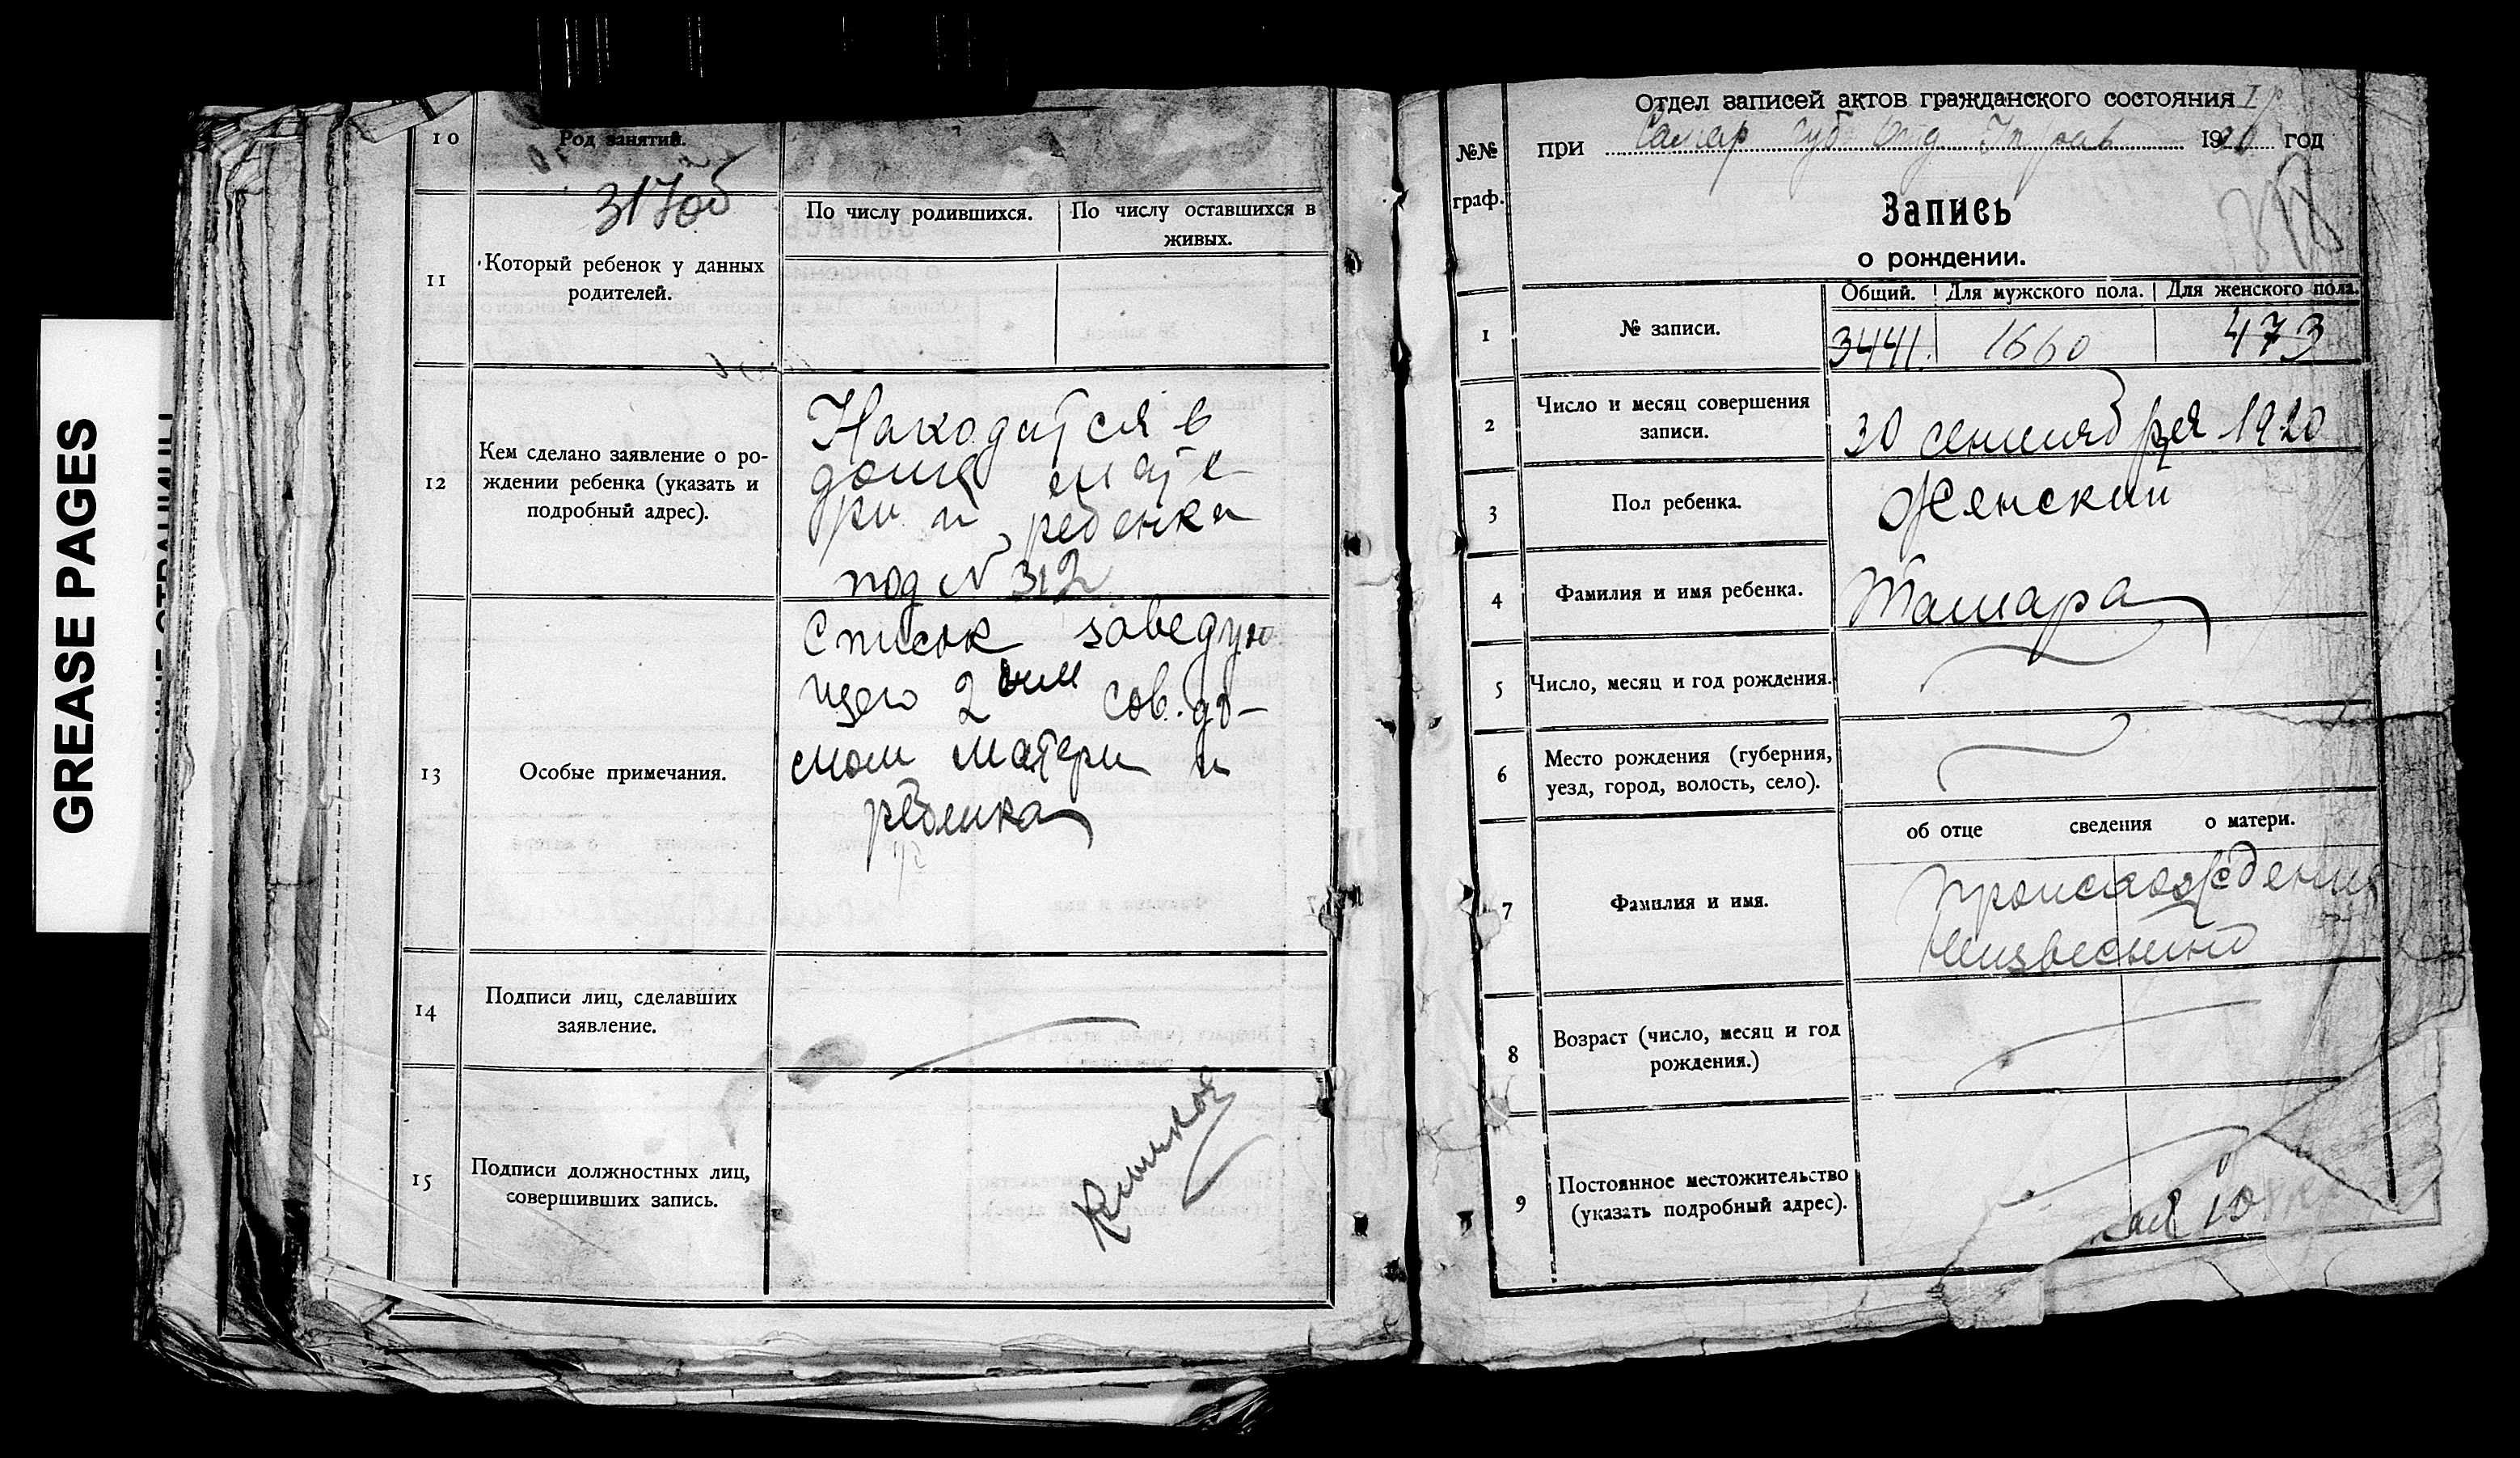 GREASE PAGES
10
Род занятий.
317об
11
Который ребенок у данных
родителей.
По числу родившихся.
По числу оставшихся в
живых.
12
Кем сделано заявление о ро-
ждении ребенка (указать и
подробный адрес).
Находится в
доме мате
ри и ребенка
под № 312
13
Особые примечания.
Список заведую
щего 2 ым сов. до-
мом матери и
ребенка
14
Подписи лиц, сделавших
заявление.
15
Подписи должностных лиц,
совершивших запись.
Отдел записей актов гражданского состояния
№№
граф.
при Самар Губ Отд Управ 1920 год
Запись
о рождении.
1
№ записи.
Общий.
Для мужского пола.
Для женского пола.
3441.
1660
473
2
Число и месяц совершения
записи.
30 сентября 1920
3
Пол ребенка.
Женский
4
Фамилия и имя ребенка.
Тамара
5
Число, месяц и год рождения.
6
Место рождения (губерния,
уезд, город, волость, село).
об отце сведения о матери.
7
Фамилия и имя.
Происхождение
неизвестно
8
Возраст (число, месяц и год
рождения.)
9
Постоянное местожительство
(указать подробный адрес).